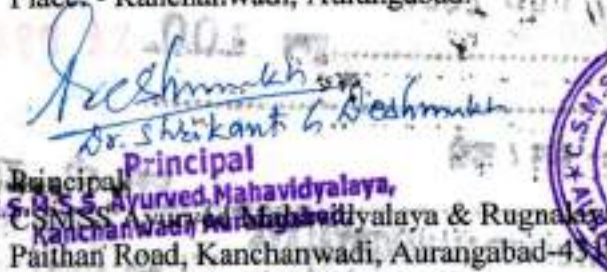 Place: - Kanchanwadi, Aurangabad.
Dr. Shrikant G. Deshmukh
Principal
Principal
C.S.M.S.S. Ayurved Mahavidyalaya,
Kanchanwadi, Aurangabad.
CSMSS Ayurved Mahavidyalaya & Rugnalaya
Paithan Road, Kanchanwadi, Aurangabad-43
C.S.M.S.